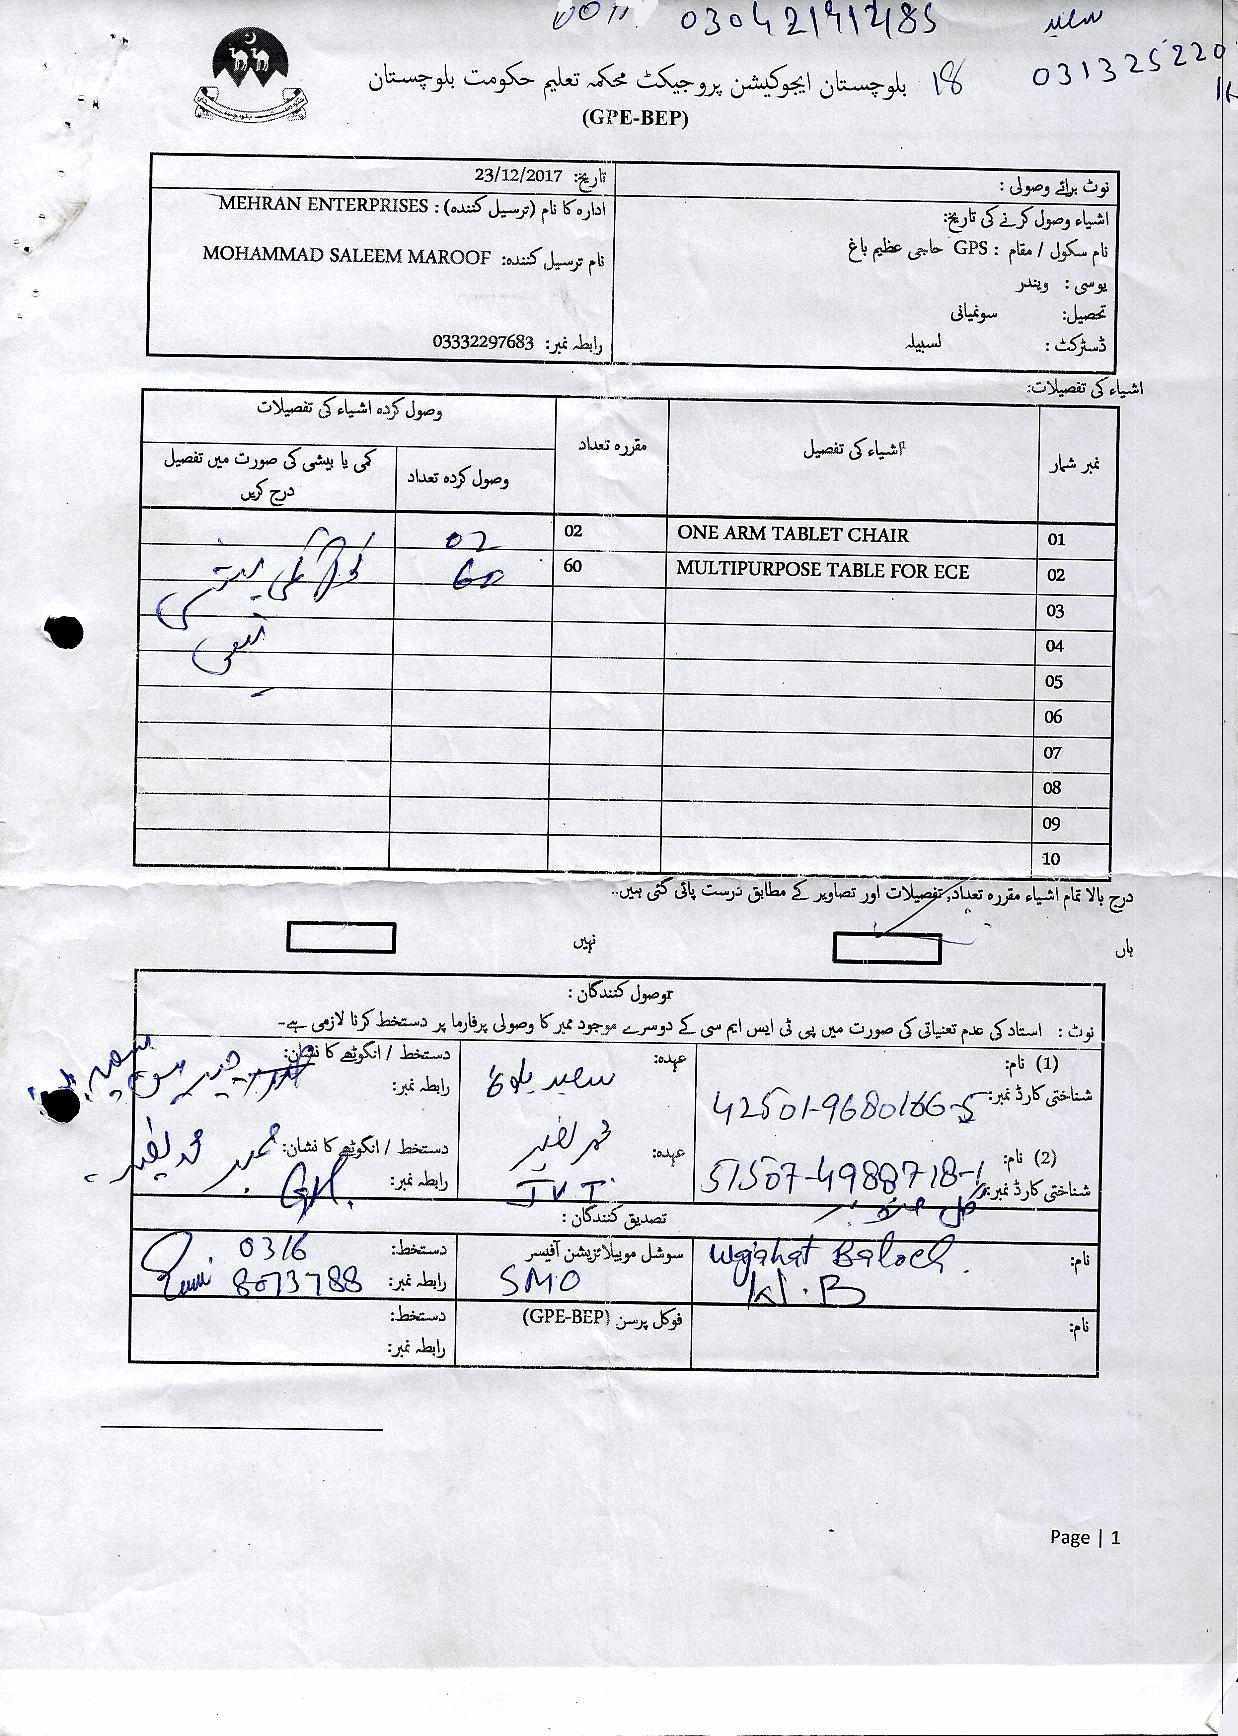 030421912485
سعید
031325220
بلوچستان ایجوکیشن پروجیکٹ محکمہ تعلیم حکومت بلوچستان 18
(GPE-BEP)
نوٹ برائے وصولی :
اشیاء وصول کرنے کی تاریخ:
نام سکول / مقام : GPS حاجی عظیم باغ
یوسی : ویندر
تحصیل: سونمیانی
ڈسٹرکٹ : لسبیلہ
تاریخ: 23/12/2017
ادارہ کا نام (ترسیل کنندہ) : MEHRAN ENTERPRISES
نام ترسیل کنندہ: MOHAMMAD SALEEM MAROOF
رابطہ نمبر: 03332297683
اشیاء کی تفصیلات:
نمبر شمار اشیاء کی تفصیل مقررہ تعداد وصول کردہ اشیاء کی تفصیلات
وصول کردہ تعداد کمی یا بیشی کی صورت میں تفصیل درج کریں
01 ONE ARM TABLET CHAIR 02 02
02 MULTIPURPOSE TABLE FOR ECE 60 60
03
04
05
06
07
08
09
10
درج بالا تمام اشیاء مقررہ تعداد, تفصیلات اور تصاویر کے مطابق درست پائی گئی ہیں..
ہاں نہیں
وصول کنندگان :
نوٹ : استاد کی عدم تعنیاتی کی صورت میں پی ٹی ایس ایم سی کے دوسرے موجود ممبر کا وصولی پرفارما پر دستخط کرنا لازمی ہے-
(1) نام: عہدہ: سعید بلوچ دستخط / انگوٹھے کا نشان:
شناختی کارڈ نمبر: 42501-9680166-5 رابطہ نمبر:
(2) نام: عہدہ: دستخط / انگوٹھے کا نشان:
شناختی کارڈ نمبر: 51507-4988718-1 JVT رابطہ نمبر:
تصدیق کنندگان :
نام: Wajahat Baloch سوشل موبیلائزیشن آفیسر دستخط: 0316
W.B SMO رابطہ نمبر: 8073788
نام: فوکل پرسن (GPE-BEP) دستخط:
رابطہ نمبر:
Page | 1